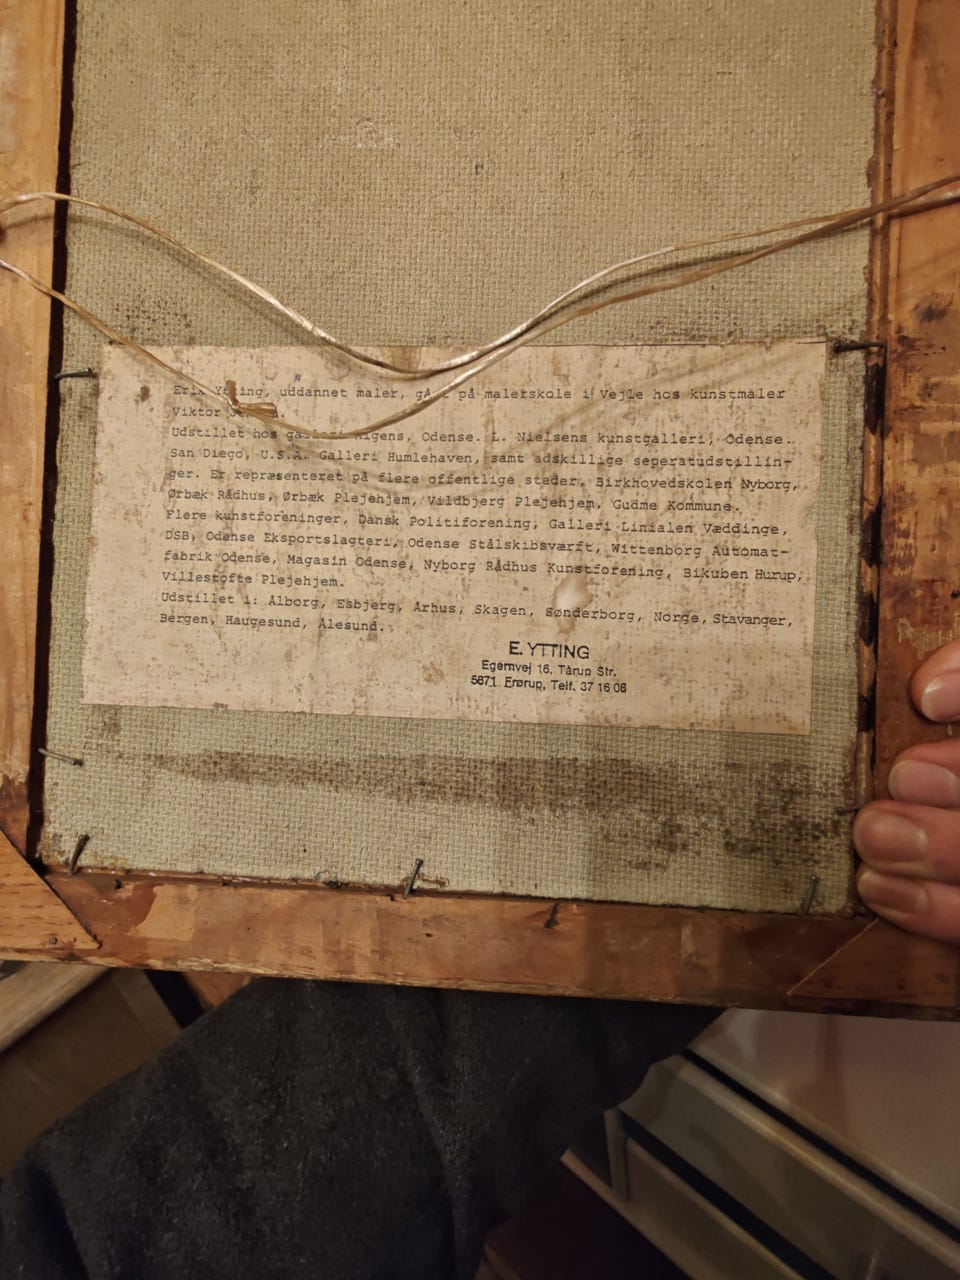 Erik Ytting, uddannet maler, gået på malerskole i Vejle hos kunstmaler
Viktor
Udstillet hos Odense. L. Nielsens kunstgalleri, Odense.
San Diego, U.S.A. Galleri Humlehaven, samt adskillige seperatudstillin-
ger. Er repræsenteret på flere offentlige steder, Birkhovedskolen Nyborg,
Ørbæk Rådhus, Ørbæk Plejehjem, Vildbjerg Plejehjem, Gudme Kommune.
Flere kunstforeninger, Dansk Politiforening, Galleri Linialen Væddinge,
DSB, Odense Eksportslagteri, Odense Stålskibsværft, Wittenborg Automat-
fabrik Odense, Magasin Odense, Nyborg Rådhus Kunstforening, Bikuben Hurup,
Villestofte Plejehjem.
Udstillet i: Alborg, Esbjerg, Arhus, Skagen, Sønderborg, Norge, Stavanger,
Bergen, Haugesund, Alesund.
E. YTTING
Egernvej 16, Tårup Str.
5871 Frørup, Telf. 37 16 08